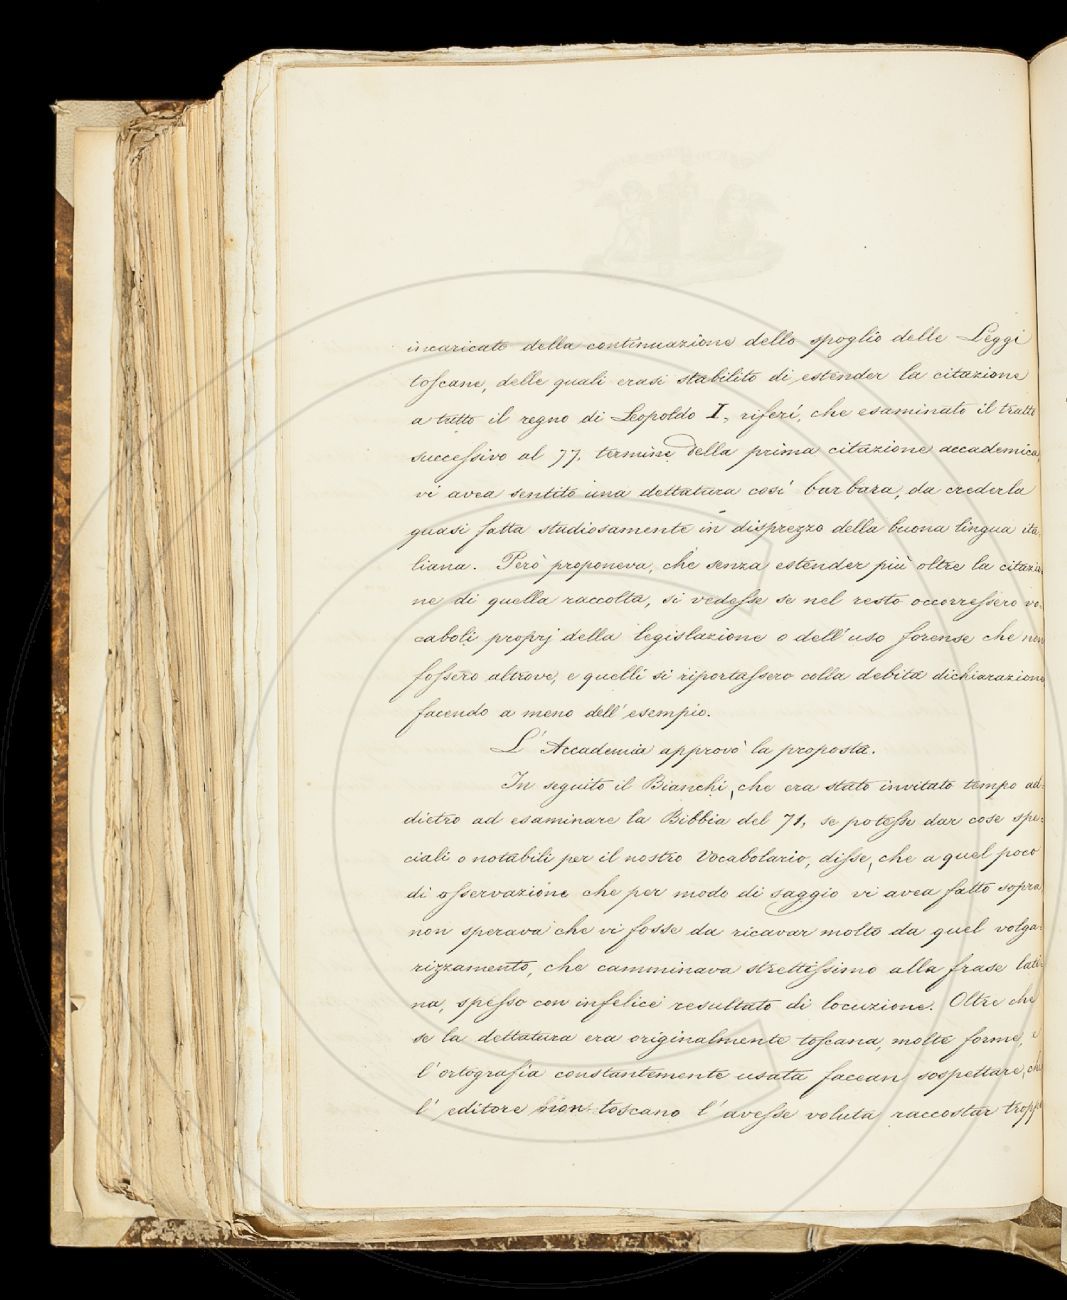 incaricato della continuazione dello spoglio delle Leggi
toscane, delle quali erasi stabilito di estender la citazione
a tutto il regno di Leopoldo I., riferì, che esaminato il tratto
successivo al 77, termine della prima citazione accademica,
vi avea sentito una dettatura così barbara, da crederla
quasi fatta studiosamente in disprezzo della buona lingua ita-
liana. Però proponeva, che senza estender più oltre la citazio-
ne di quella raccolta, si vedesse se nel resto occorressero vo-
caboli proprj della legislazione o dell'uso forense che non
fossero altrove, e quelli si riportassero colla debita dichiarazione
facendo a meno dell'esempio.
L'Accademia approvò la proposta.
In seguito il Bianchi, che era stato invitato tempo ad-
dietro ad esaminare la Bibbia del 71, se potesse dar cose spe-
ciali o notabili per il nostro Vocabolario, disse, che a quel poco
di osservazione che per modo di saggio vi avea fatto sopra
non sperava che vi fosse da ricavar molto da quel volga-
rizzamento, che camminava strettissimo alla frase lati-
na, spesso con infelice resultato di locuzione. Oltre che
se la dettatura era originalmente toscana, molte forme, e
l'ortografia constantemente usata facean sospettare, che
l'editore non toscano l'avesse voluta raccostar troppo